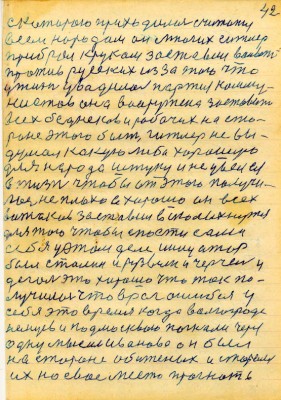 42
с которою приходили считаться
всем народам он многих
прибрал к рукам заставил воевать
против русских из за того что
у них увидил партия комму-
нистов она вооружена заставить
всех бедняков и рабочих на сто-
роне этого быть гитлер не вы-
думал какую либо хорошую
для народа штуку и не увлекся
в жизни чтобы от этого получи-
лось не плохо а хорошо он всех
заставил в
для того чтобы спасти сами
себя у этом деле
был сталин и рузвельт и черчел и
делал это хорошо что так по-
лучилось что враг ошибся у
себя это время когда волгограде
немцев и под москвою погнали через
одну мысль иваново он был
на стороне обиженых и старался
их на свое место прогнать